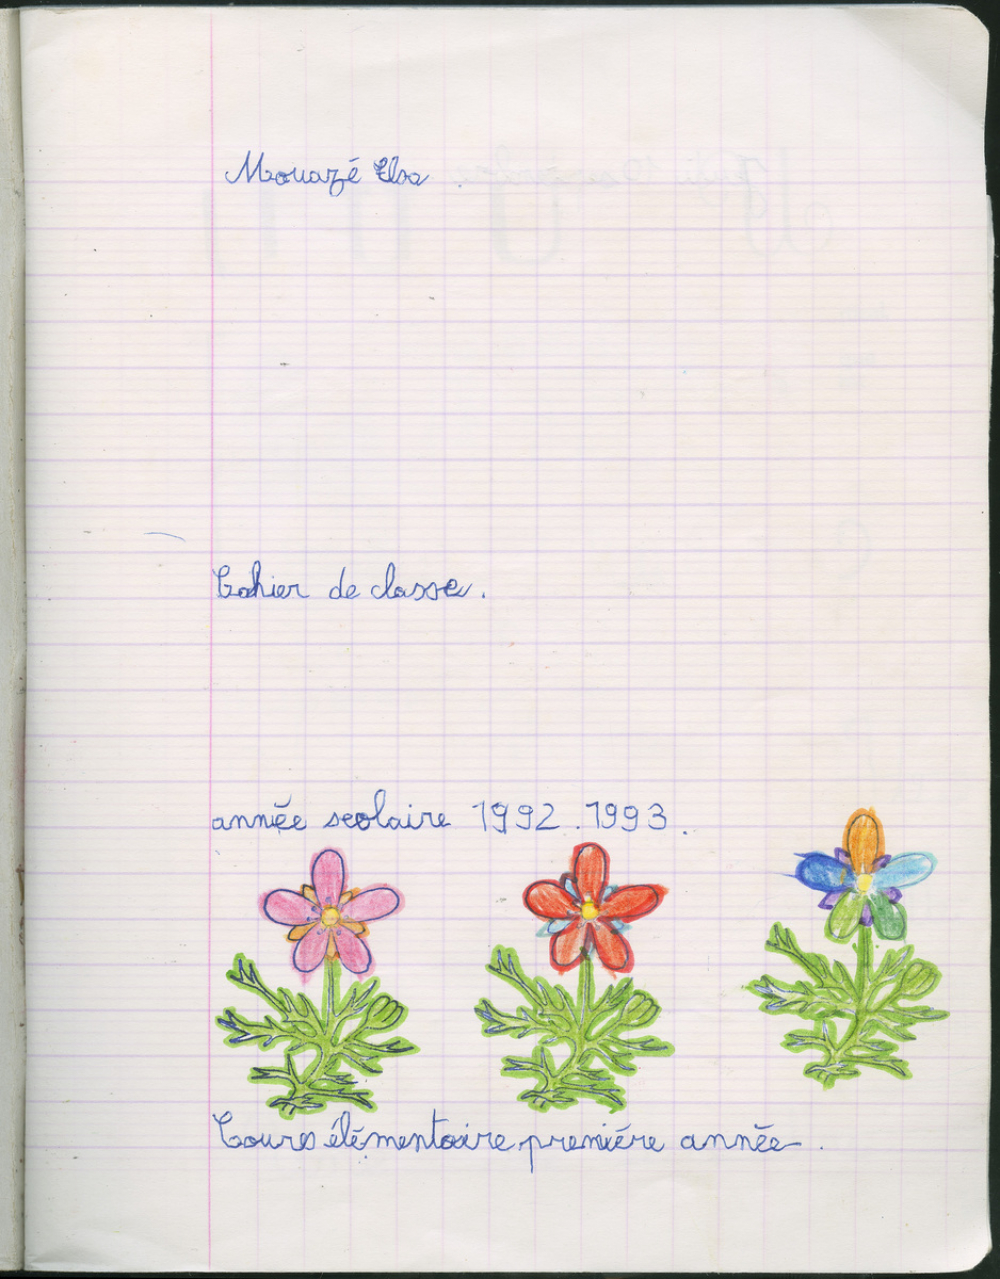 Mouazé Elsa
Cahier de classe.
année scolaire 1992.1993.
Cours élémentaire première année.